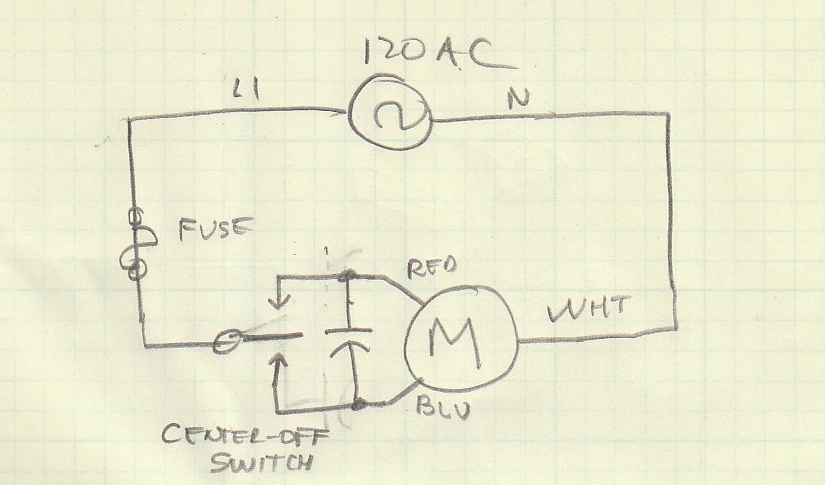 120 AC
L1
N
FUSE
RED
M
WHT
BLU
CENTER-OFF
SWITCH